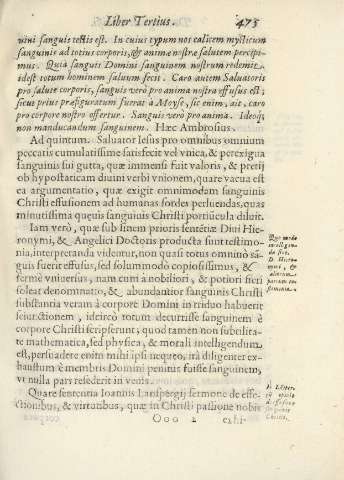 Liber Tertius. 473
vini sanguis testis est. In cuius typum nos calicem mysticum
sanguinis ad totius corporis, & animæ nostræ salutem percipi-
mus. Quia sanguis Domini sanguinem nostrum redemit,
idest totum hominem saluum fecit. Caro autem Saluatoris
pro salute corporis, sanguis verò pro anima nostra effusus est;
sicut prius præfiguratum fuerat à Moyse, sic enim, ait, caro
pro corpore nostro offertur. Sanguis verò pro anima. Ideoq;
non manducandum sanguinem. Hæc Ambrosius.
Ad quintum. Saluator Iesus pro omnibus omnium
peccatis cumulatissimè satisfecit vel vnica, & perexigua
sanguinis sui gutta, quæ immensi fait valoris, & pretij
ob hypostaticam diuini verbi vnionem, quare vacua est
ea argumentatio, quæ exigit omnimodam sanguinis
Christi effusionem ad humanas sordes perluendas, quas
minutissima quęuis sanguinis Christi portiuncula diluit.
Iam verò, quæ sub finem prioris sentẽtiæ Diui Hie-
ronymi, & Angelici Doctoris producta sunt testimo-
nia, interpretanda videntur, non quasi totus omninò sã-
guis fuerit effusus, sed solummodò copiosissimus, &
fermè vniuersus, nam cum à nobiliori, & potiori fieri
soleat denominatio, & abundantior sanguinis Christi
substantia veram à corpore Domini in triduo habuerit
seiunctionem, idcircò totum decurrisse sanguinem è
corpore Christi scripserunt; quod tamen non subtilita-
te mathematica, sed physica, & morali intelligendum
est, persuadere enim mihi ipsi nequeo, ità diligenter ex-
haustum è membris Domini penitus fuisse sanguinem,
vt nulla pars resederit in venis.
Quare sententia Ioannis Lanspergij sermone de effe-
ctionibus, & virtutibus, quæ in Christi passione nobis
Ooo 2 exhi-
Quomodo
intelligen-
da sint
D. Hiero-
nymi, &
aliorum
patrum tes-
timonia.
Christi.